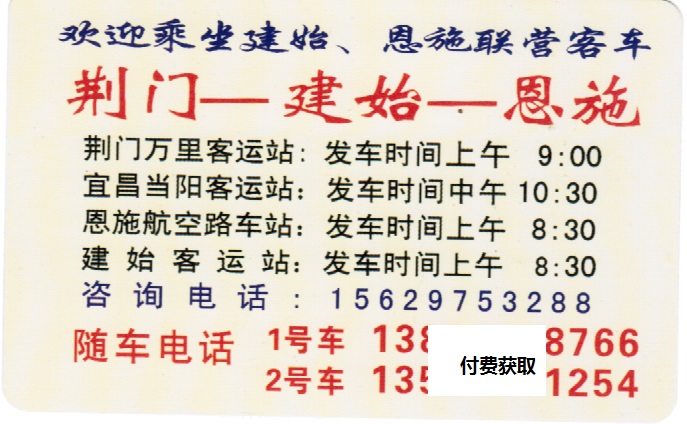 欢迎乘坐建始、恩施联营客车
荆门—建始—恩施
荆门万里客运站：发车时间上午 9:00
宜昌当阳客运站：发车时间中午 10:30
恩施航空路车站：发车时间上午 8:30
建始客运站：发车时间上午 8:30
咨询电话：15629753288
随车电话 1号车 138 8766
付费获取
2号车 135 1254